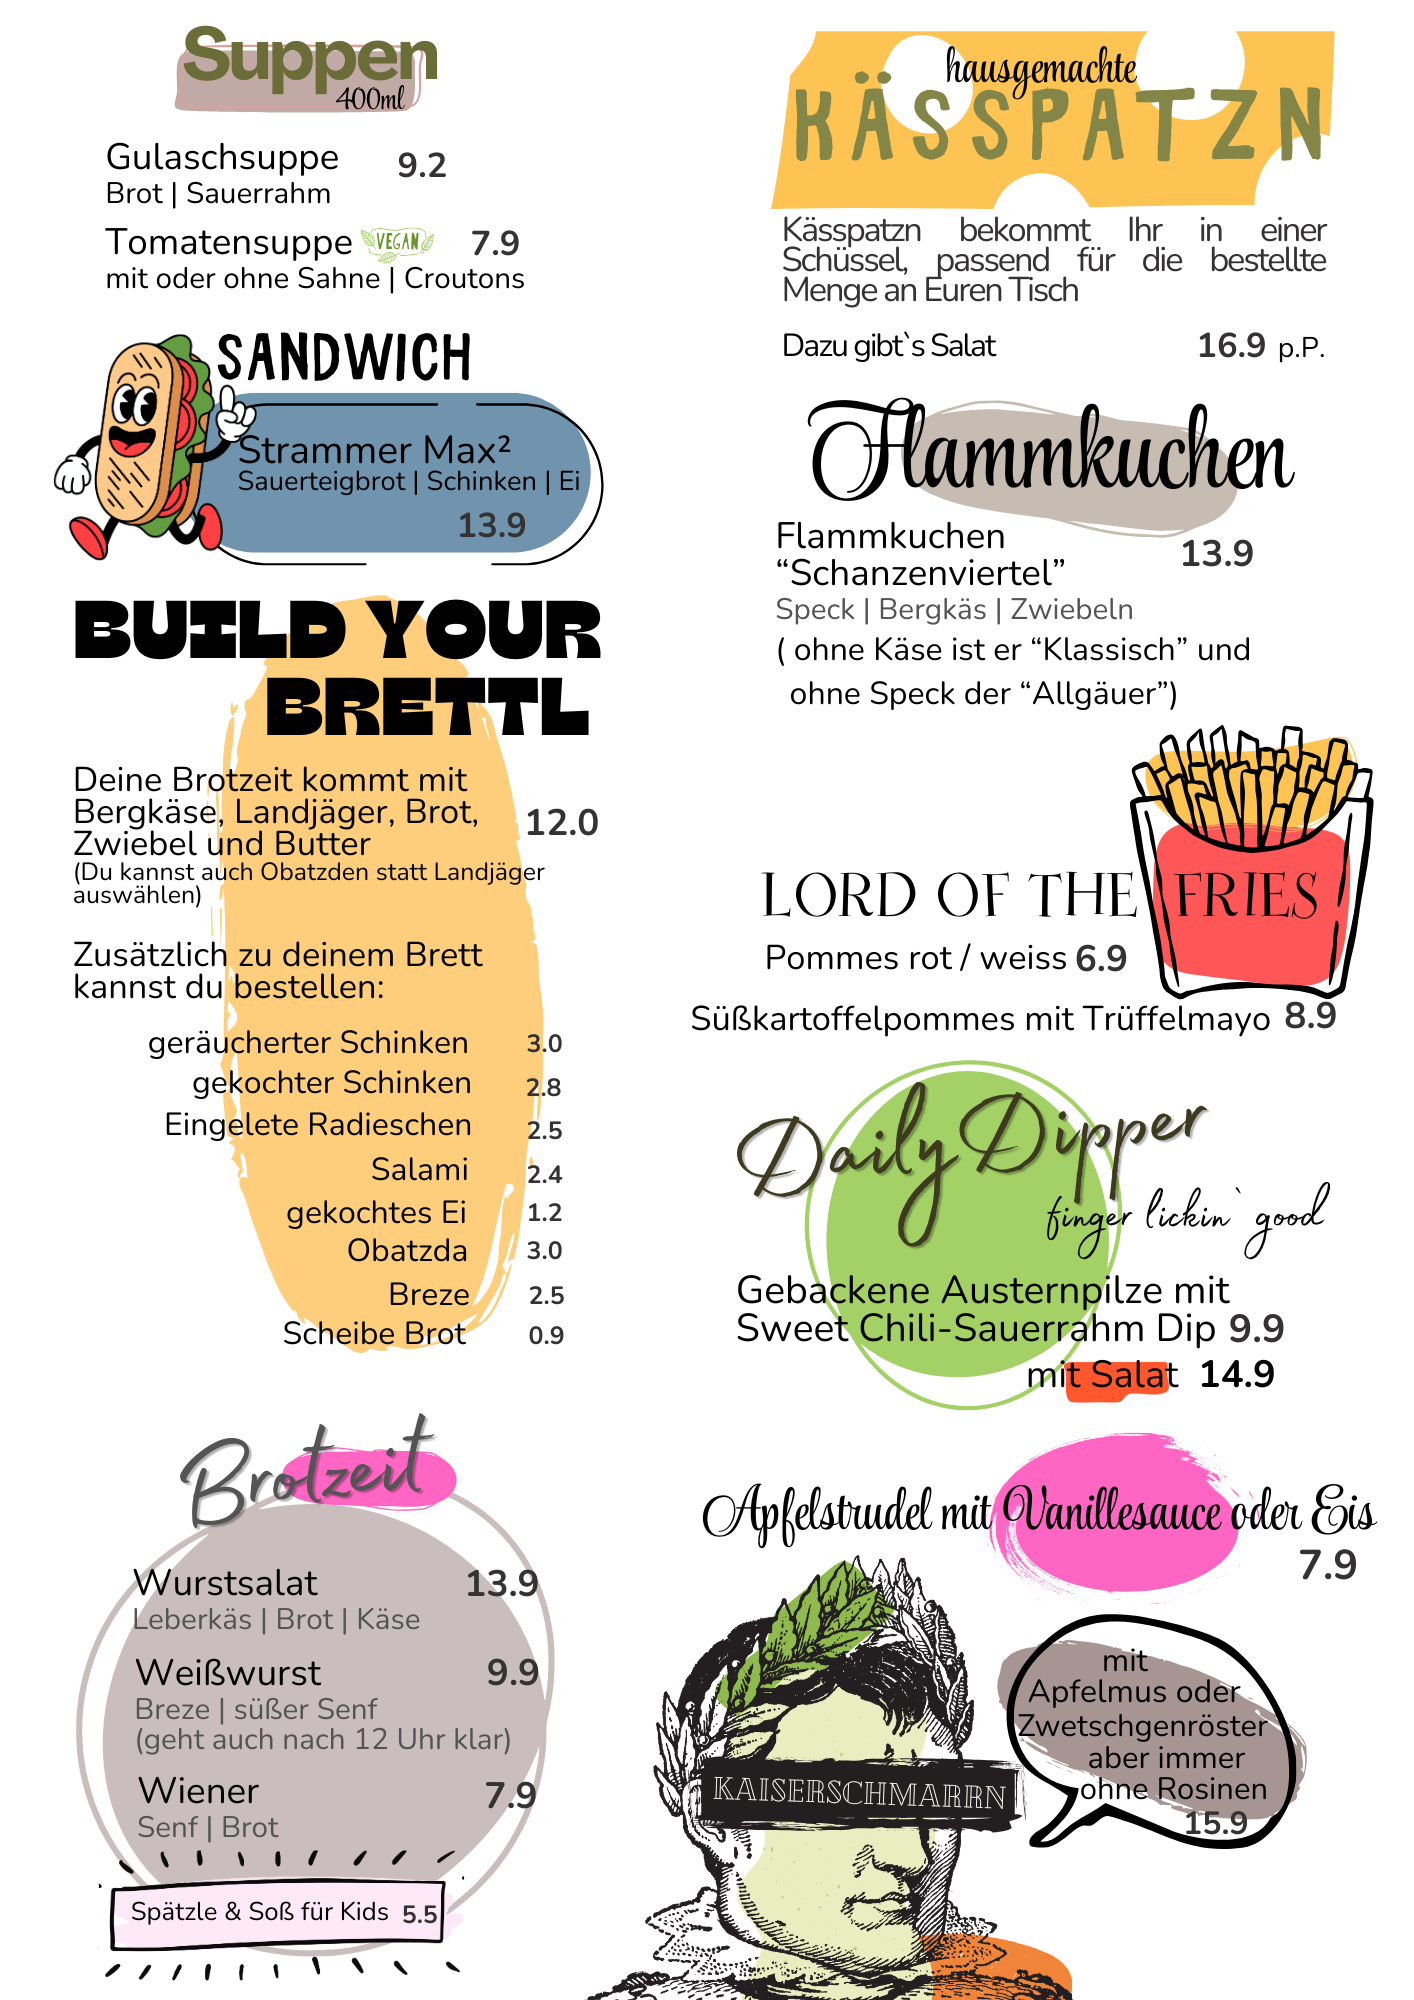 Suppen
400ml
Gulaschsuppe 9.2
Brot | Sauerrahm
Tomatensuppe VEGAN 7.9
mit oder ohne Sahne | Croutons
SANDWICH
Strammer Max²
Sauerteigbrot | Schinken | Ei
13.9
BUILD YOUR
BRETTL
Deine Brotzeit kommt mit
Bergkäse, Landjäger, Brot,
12.0
Zwiebel und Butter
(Du kannst auch Obatzden statt Landjäger
auswählen)
Zusätzlich zu deinem Brett
kannst du bestellen:
geräucherter Schinken 3.0
gekochter Schinken 2.8
Eingelete Radieschen 2.5
Salami 2.4
gekochtes Ei 1.2
Obatzda 3.0
Breze 2.5
Scheibe Brot 0.9
Brotzeit
Wurstsalat 13.9
Leberkäs | Brot | Käse
Weißwurst 9.9
Breze | süßer Senf
(geht auch nach 12 Uhr klar)
Wiener 7.9
Senf | Brot
Spätzle & Soß für Kids 5.5
hausgemachte
KÄSSPATZN
Kässpatzn bekommt Ihr in einer
Schüssel, passend für die bestellte
Menge an Euren Tisch
Dazu gibt`s Salat 16.9 p.P.
Flammkuchen
Flammkuchen
13.9
“Schanzenviertel”
Speck | Bergkäs | Zwiebeln
( ohne Käse ist er “Klassisch” und
ohne Speck der “Allgäuer”)
LORD OF THE FRIES
Pommes rot / weiss 6.9
Süßkartoffelpommes mit Trüffelmayo 8.9
Daily Dipper
finger lickin` good
Gebackene Austernpilze mit
Sweet Chili-Sauerrahm Dip 9.9
mit Salat 14.9
Apfelstrudel mit Vanillesauce oder Eis
7.9
KAISERSCHMARRN
mit
Apfelmus oder
Zwetschgenröster
aber immer
ohne Rosinen
15.9